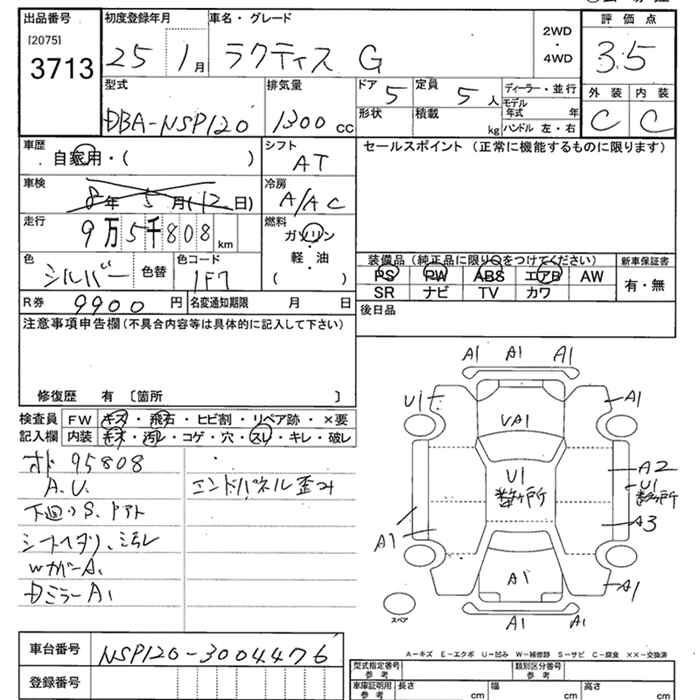 出品番号 初度登録年月 車名・グレード 2WD・4WD 評価点
[2075] 3713 25 1月 ラクティス G 3.5
型式 排気量 ドア 5 定員 5人 ディーラー・並行 外装 内装
DBA-NSP120 1300cc 形状 積載 kg モデル年式 年 C C
ハンドル 左・右
車歴 自家用・( ) シフト AT セールスポイント (正常に機能するものに限ります)
車検 8年5月(12日) 冷房 A/AC
走行 9万5千808km 燃料 ガソリン・軽・油 ( )
装備品 (純正品に限り○をつけてください) 新車保証書
色 シルバー 色替 色コード 1F7 PS PW ABS エアB AW 有・無
SR ナビ TV カワ
R券 9900円 名変通知期限 月 日 後日品
注意事項申告欄 (不具合内容等は具体的に記入して下さい)
修復歴 有 〔箇所 〕
検査員 FW キズ・飛石・ヒビ割・リペア跡・×要
記入欄 内装 キズ・汚レ・コゲ・穴・スレ・キレ・破レ
オド 95808
A.U. エンドパネル歪み
下回りS.
シートヘタリ、汚レ
WカバーA1
DミラーA1
A1 A1 A1
U1 A1
UA1
U1 数ヶ所
A2
U1 数ヶ所
A3
A1
A1
A1
A1 A1
スペア
A-キズ E-エクボ U-凹み W-補修跡 S-サビ C-腐食 XX-交換済
車台番号 NSP120-3004476
登録番号
型式指定番号 参考 類別区分番号 参考
車庫証明用 参考 長さ cm 幅 cm 高さ cm